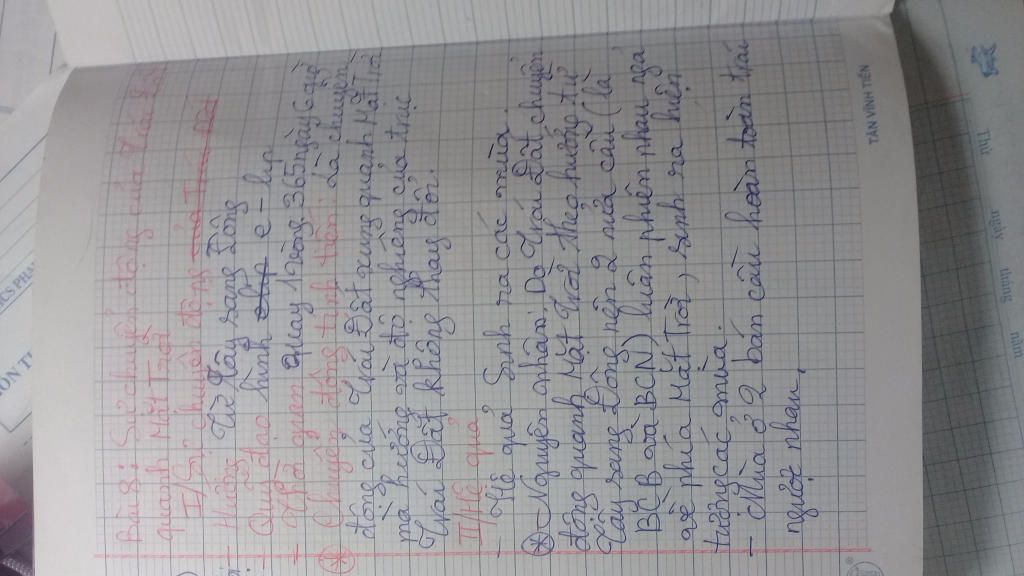 Bài 8: Sự chuyển động của Trái Đất
quanh Mặt Trời
I/ Sự chuyển động của Trái Đất
- Hướng Từ Tây sang Đông
- Quỹ đạo hình elip e-lip
- Thời gian quay 1 vòng 365 ngày 6 giờ
* Chuyển động tịnh tiến: Là chuyển
động của Trái Đất xung quanh Mặt Trời
mà hướng và độ nghiêng của trục
Trái Đất không thay đổi.
II/ Hệ quả
- Hệ quả Sinh ra các mùa.
* Nguyên nhân: Do Trái Đất chuyển
động quanh Mặt Trời theo hướng từ
Tây sang Đông nên 2 nửa cầu (là
BCB và BCN) luân phiên nhau ngả
về phía Mặt Trời, sinh ra hiện
tượng các mùa.
- Mùa ở 2 bán cầu hoàn toàn trái
ngược nhau.
TÂN VĨNH TIẾN
Thứ ngày tháng năm